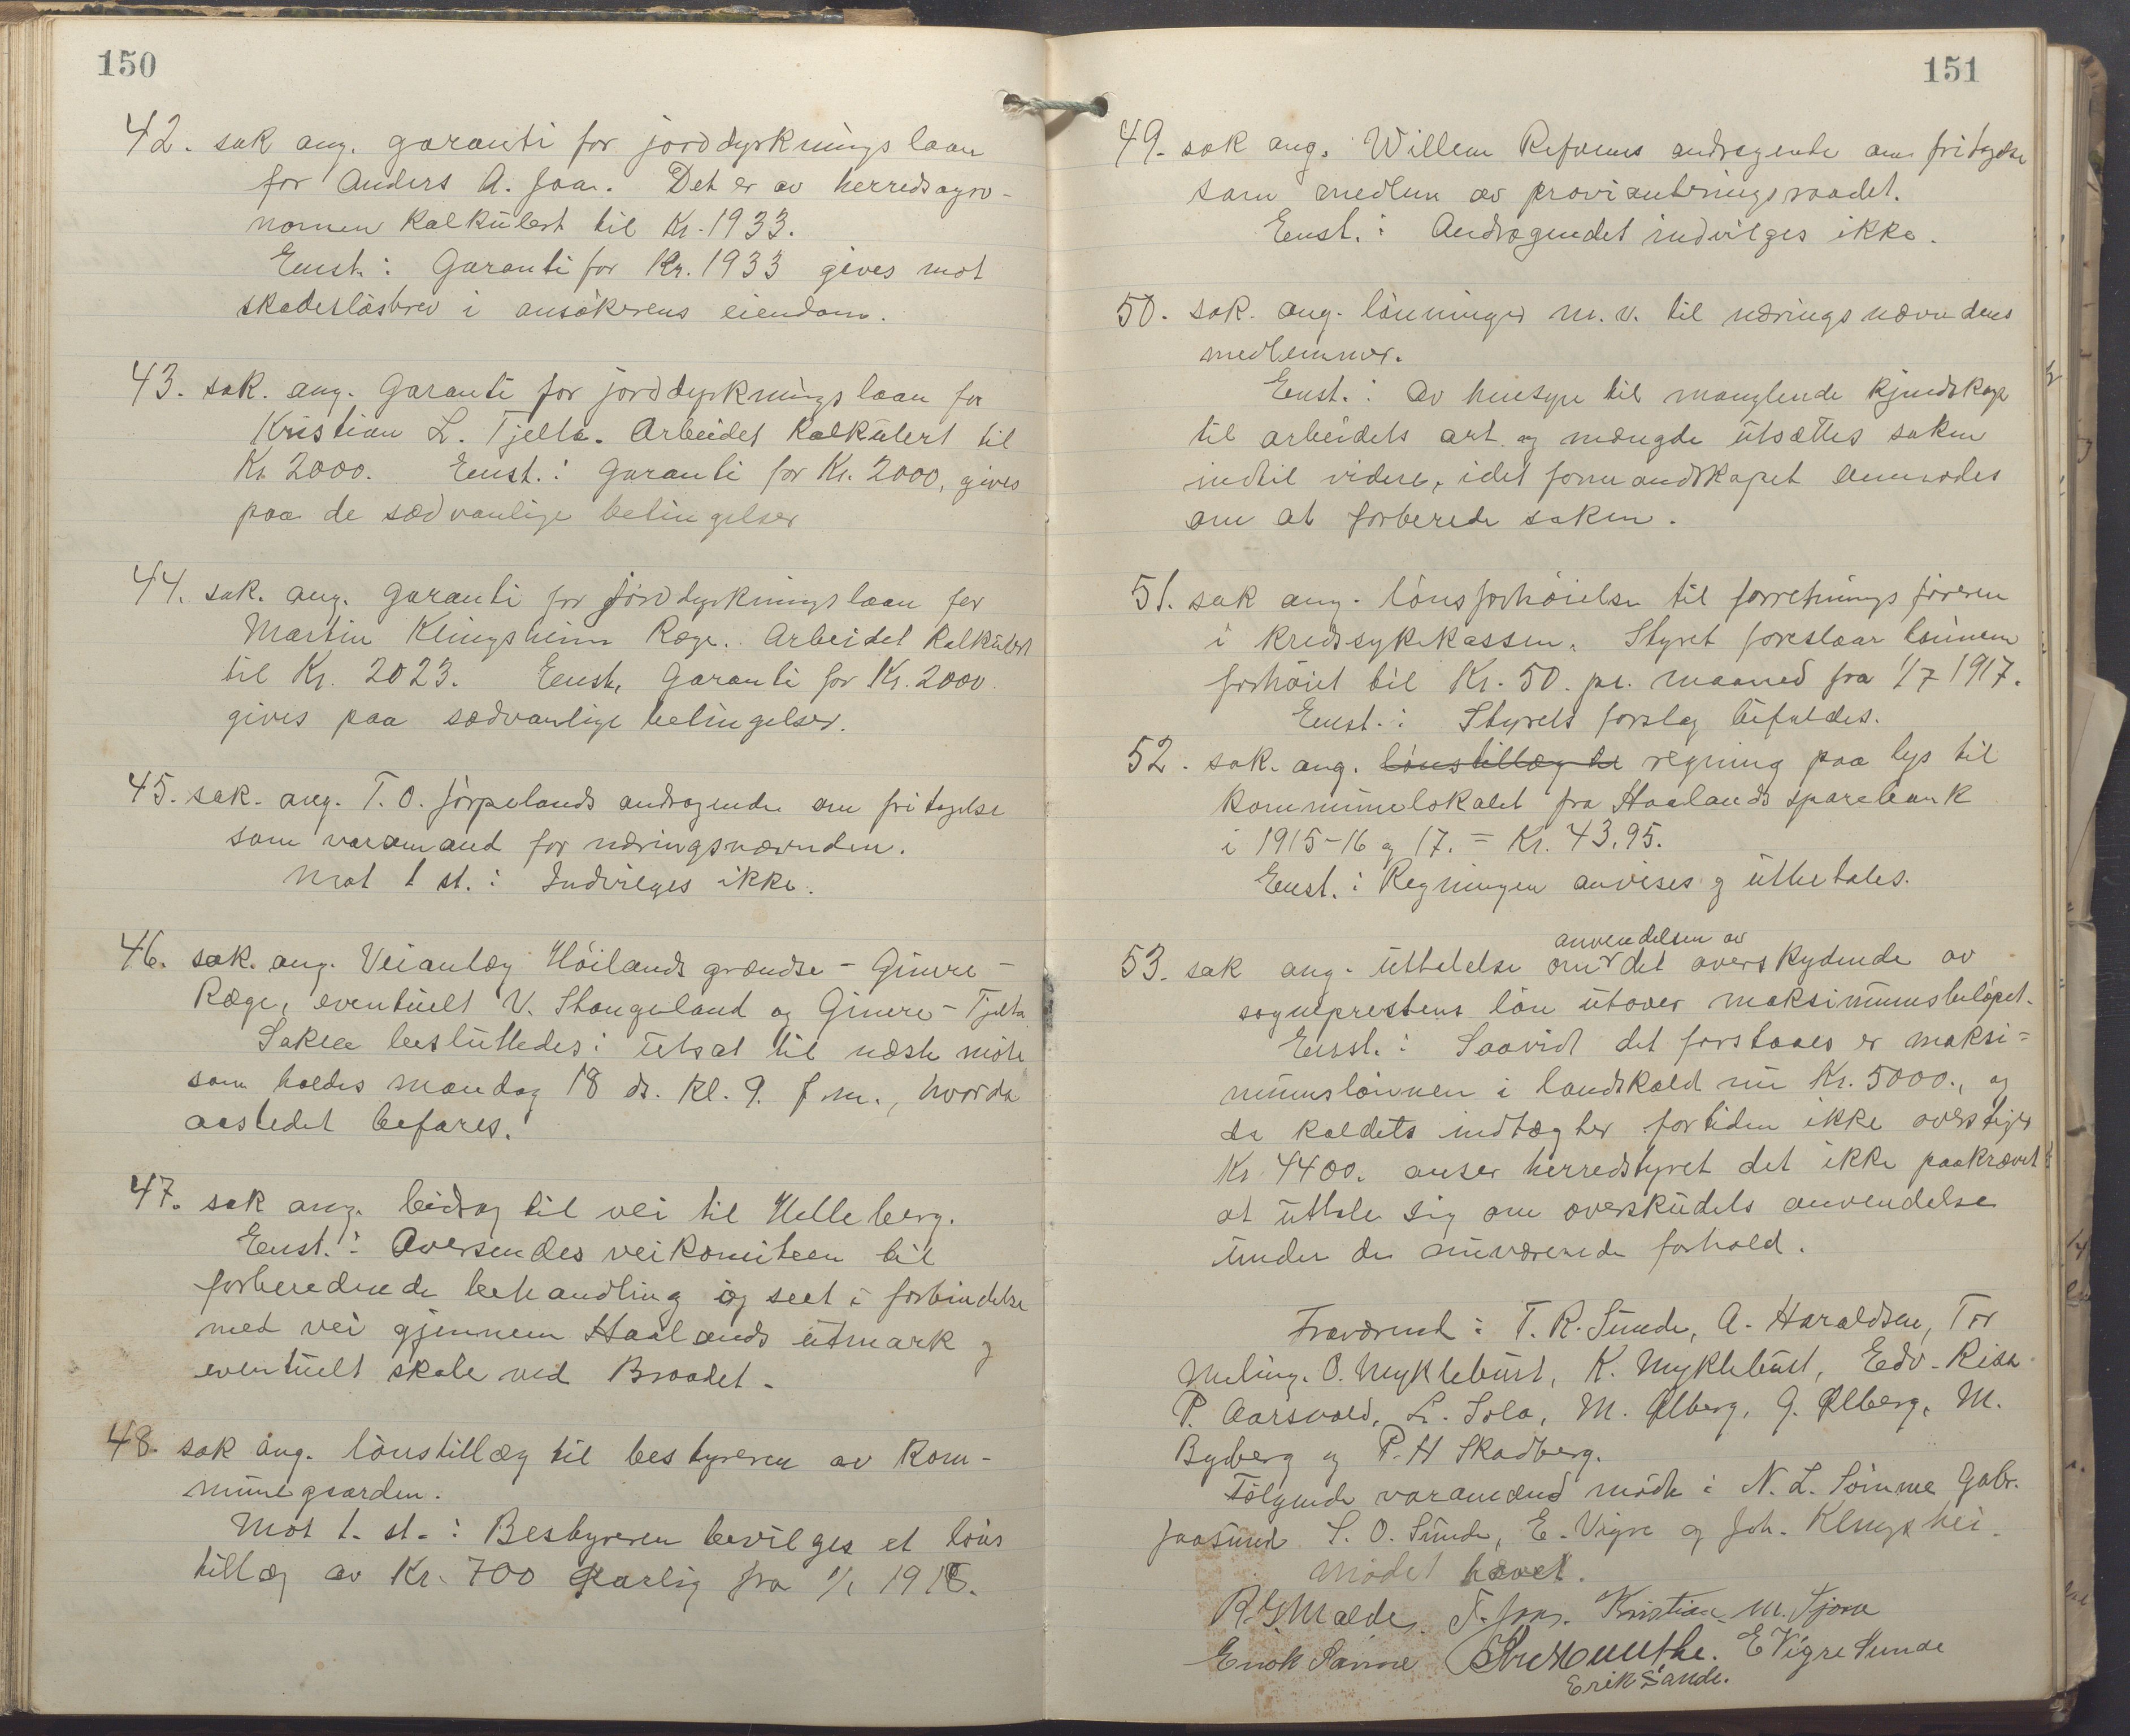 150
42. sak ang. garanti for jorddyrknings laan
for Anders A. Joa. Det er av herredsagro-
nomen kalkulert til Kr. 1933.
Enst.: Garanti for Kr. 1933 gives mot
skadesløsbrev i ansökerens eiendom.
43. sak. ang. Garanti for jorddyrknings laan for
Kristian L. Tjelta. Arbeidet kalkulert til
Kr. 2000. Enst.: Garanti for Kr. 2000, gives
paa de sædvanlige betingelser
44. sak. ang. garanti for jorddyrkningslaan for
Martin Klingsheim Ræge. Arbeidet kalkulert
til Kr. 2023. Enst. Garanti for Kr. 2000.
gives paa sædvanlige betingelser.
45. sak. ang. T. O. Jörpelands andragende om fritagelse
som varamand for næringsnævnden.
Mot 1 st.: Indvilges ikke.
46. sak. ang. Veianlæg Höilands grændse - Gimre -
Ræge, eventuelt V. Stangeland og Gimre - Tjelta.
Saken besluttedes: utsat til næste möte
som holdes mandag 18 ds. kl. 9. f.m., hvorda
aastedet befares.
47. sak ang. bidrag til vei til Helleberg.
Enst.: Oversendes veikomiteen til
forberedende behandling og seet i forbindelse
med vei gjennem Haalands utmark og
eventuelt skole ved Braadet.
48. sak ang. lönstillæg til bestyreren av kom-
munegaarden.
Mot 1. st.: Bestyreren bevilges et löns
tillæg av Kr. 700 aarlig fra 1/1 1918.
151
49. sak ang. Willem Refsnes andragende om fritagelse
som medlem av provianteringsraadet.
Enst.: Andragendet indvilges ikke.
50. sak. ang. lönninger m.v. til næringsnævndens
medlemmer.
Enst.: Av hensyn til manglende kjendskap
til arbeidets art og mængde utsættes saken
indtil videre, idet formandskapet anmodes
om at forberede saken.
51. sak ang. lönsforhöielse til forretnings föreren
i kredssykekassen. Styret foreslaar lönnen
forhöiet til Kr. 50. pr. maaned fra 1/7 1917.
Enst.: Styrets forslag bifaldes.
52. sak. ang. lönstillæg til regning paa lys til
kommunelokalet fra Haalands sparebank
i 1915-16 og 17. = Kr. 43.95.
Enst.: Regningen anvises og utbetales.
anvendelsen av
53. sak ang. uttalelse om det overskydende av
sogneprestens lön utover maksimumsbelöpet.
Enst.: Saavidt det forstaaes er maksi-
mumslönnen i landskald nu Kr. 5000., og
da kaldets indtægter fortiden ikke overstiger
Kr. 4400. anser herredstyret det ikke paakrævet
at uttale sig om overskudets anvendelse
under de nuværende forhold.
Fraværend: T. R. Sunde, A. Haraldsen, Tor
Meling. O. Myklebust, K. Myklebust, Edv. Risa
P. Aarsvold, L. Sola, M. Ølberg, G. Ølberg, M.
Byberg og P. H Skadberg.
Fölgende varamænd mödte: N. L. Sömme Gabr.
Joasund S. O. Sunde, E. Vigre og Joh. Klingshei.
Mödet hævet.
R. G. Malde. T. Joa. Kristian M. Tjora
Enok Sömme Munthe. E Vigre Sunde
Erik Sande.